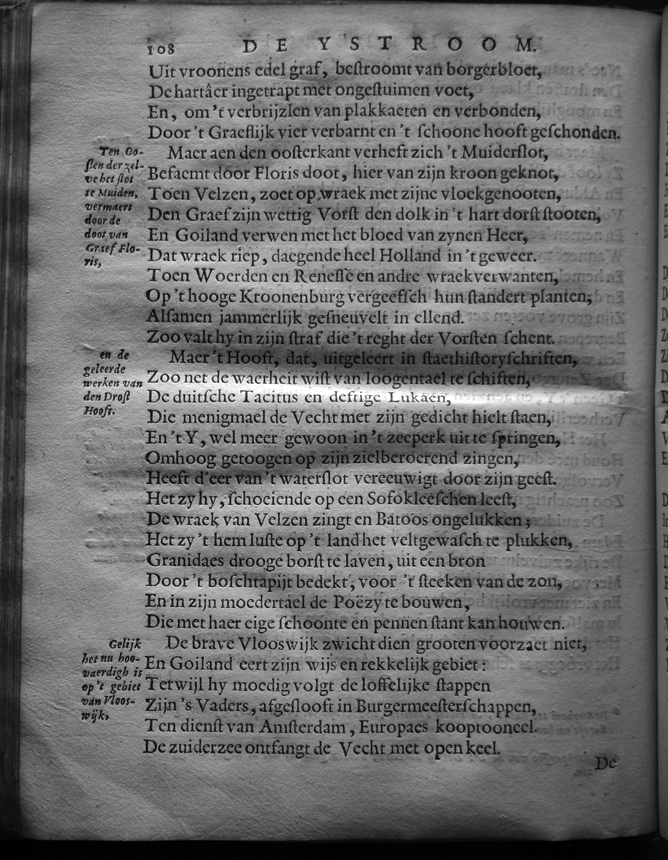 108 DE YSTROOM.
Uit vroonens edel graf, bestroomt van borgerbloet,
De hartâer ingetrapt met ongestuimen voet,
En, om 't verbrijzlen van plakkaeten en verbonden,
Door 't Graeflijk vier verbarnt en 't schoone hooft geschonden.
Maer aen den oosterkant verheft zich 't Muiderslot,
Befaemt door Floris doot, hier van zijn kroon geknot,
Toen Velzen, zoet op wraek met zijne vloekgenooten,
Den Graef zijn wettig Vorst den dolk in 't hart dorst stooten,
En Goiland verwen met het bloed van zynen Heer,
Dat wraek riep, daegende heel Holland in 't geweer.
Toen Woerden en Renesse en andre wraekverwanten,
Op 't hooge Kroonenburg vergeefsch hun standert planten,
Alsamen jammerlijk gesneuvelt in ellend.
Zoo valt hy in zijn straf die 't reght der Vorsten schent.
Maer 't Hooft, dat, uitgeleert in staethistoryschriften,
Zoo net de waerheit wist van loogentael te schiften,
De duitsche Tacitus en deftige Lukaen,
Die menigmael de Vecht met zijn gedicht hielt staen,
En 't Y, wel meer gewoon in 't zeeperk uit te springen,
Omhoog getoogen op zijn zielberoerend zingen,
Heeft d'eer van 't waterslot vereeuwigt door zijn geest.
Het zy hy, schoeiende op een Sofokleeschen leest,
De wraek van Velzen zingt en Batoos ongelukken;
Het zy 't hem luste op 't land het veltgewasch te plukken,
Granidaes drooge borst te laven, uit een bron
Door 't boschtapijt bedekt, voor 't steeken van de zon,
En in zijn moedertael de Poëzy te bouwen,
Die met haer eige schoonte en pennen stant kan houwen.
De brave Vlooswijk zwicht dien grooten voorzaet niet,
En Goiland eert zijn wijs en rekkelijk gebiet:
Terwijl hy moedig volgt de loffelijke stappen
Zijn 's Vaders, afgeslooft in Burgermeesterschappen,
Ten dienst van Amsterdam, Europaes kooptooneel.
De zuiderzee ontfangt de Vecht met open keel.
De
Ten Oo-
sten der zel-
ve het slot
te Muiden,
vermaert
door de
doot van
Graef Flo-
ris,
en de
geleerde
werken van
den Drost
Hooft.
Gelijk
het nu hoo-
vaerdigh is
op 't gebiet
van Vloos-
wijk,